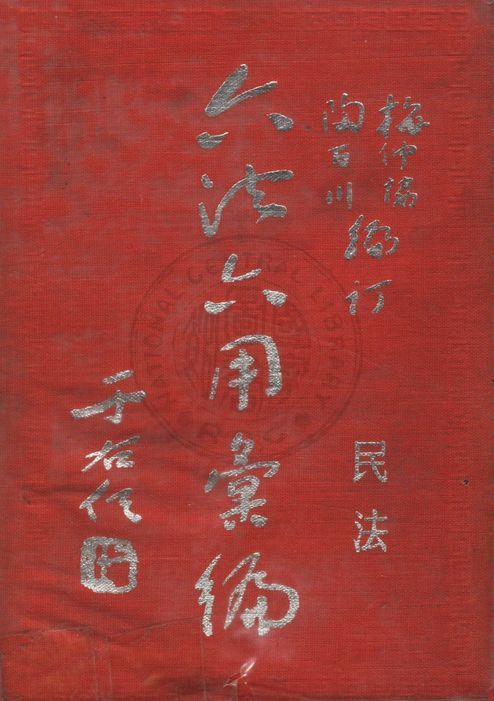 梅仲協
陶百川 編訂
民法
六法六用彙編
于右任
NATIONAL CENTRAL LIBRARY
R.O.C.